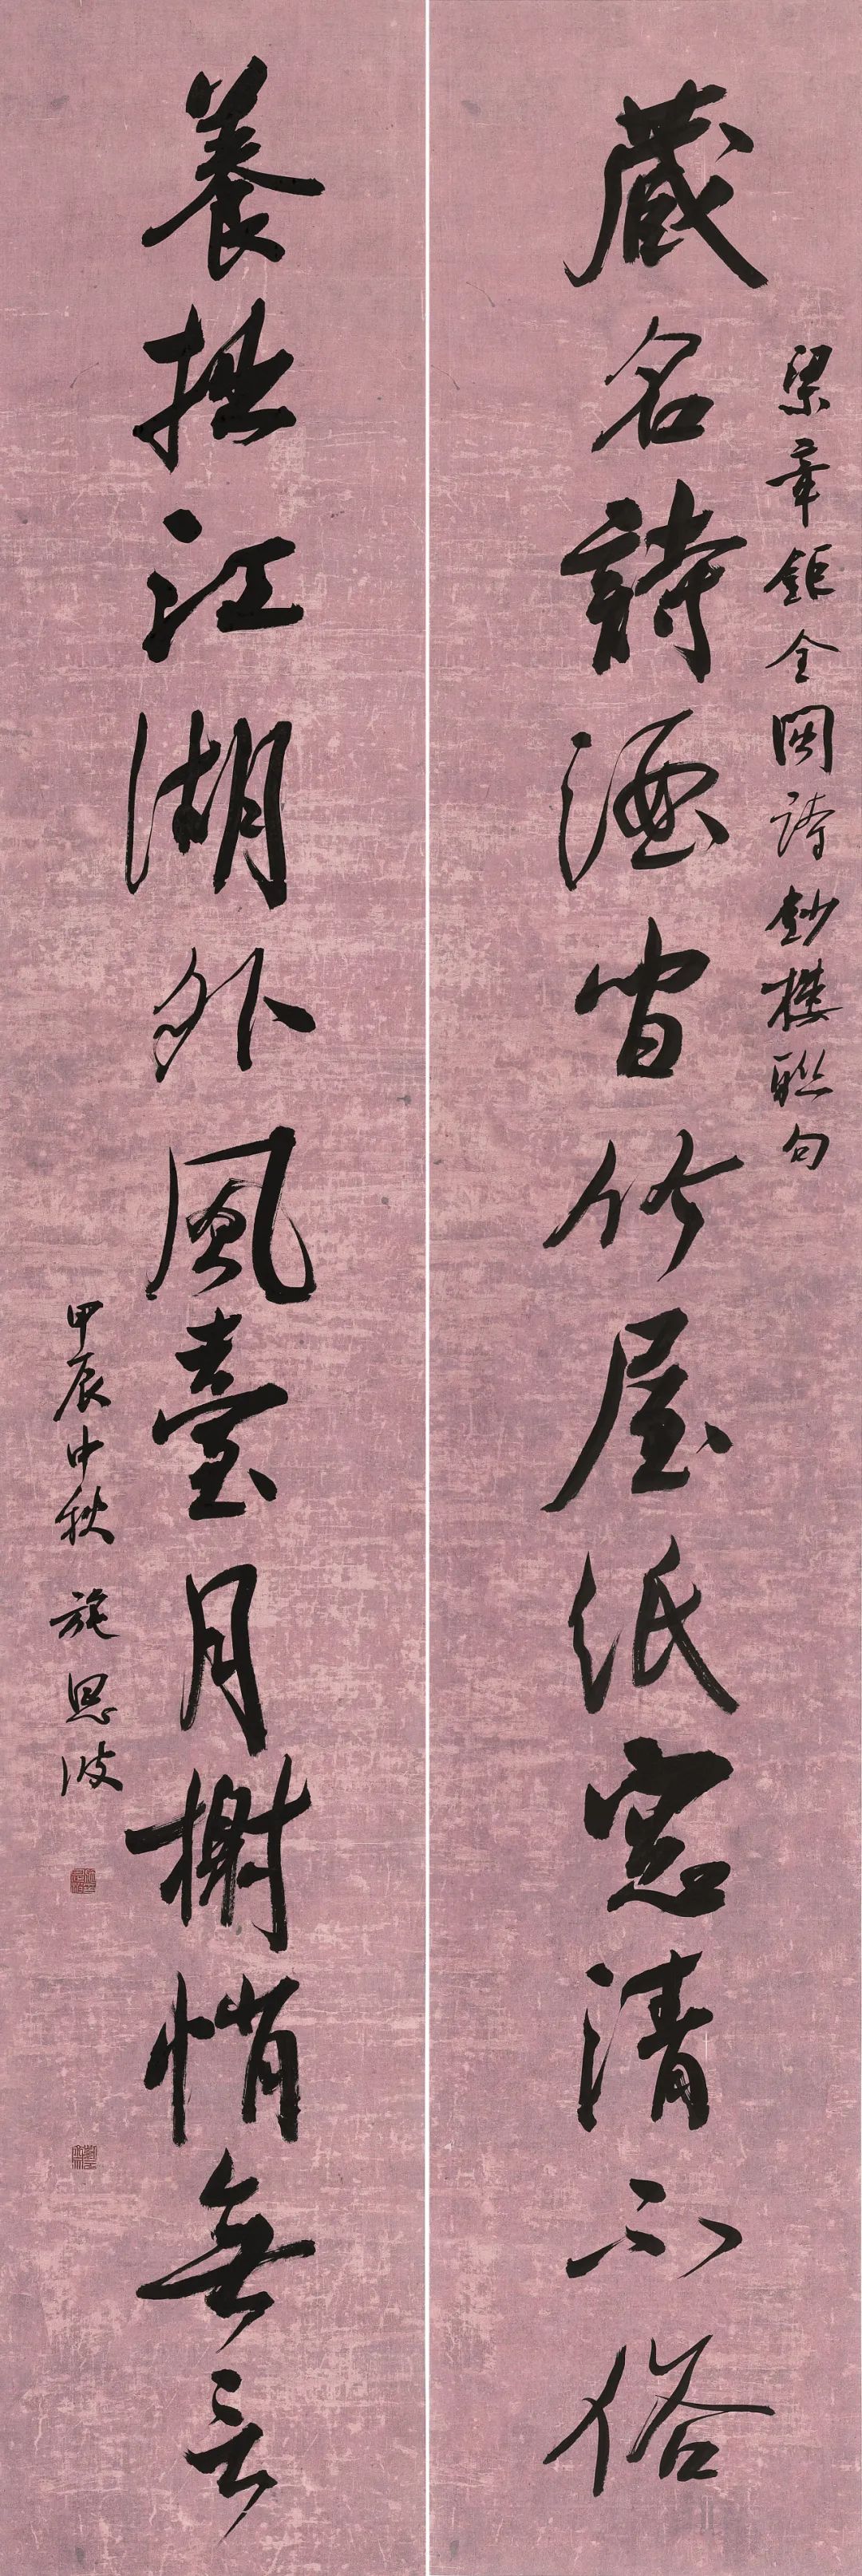 梁章鉅全閩詩鈔樓聯句
藏名詩酒間竹屋紙窗清不俗
養拙江湖外風臺月榭悄無言
甲辰中秋 施恩波